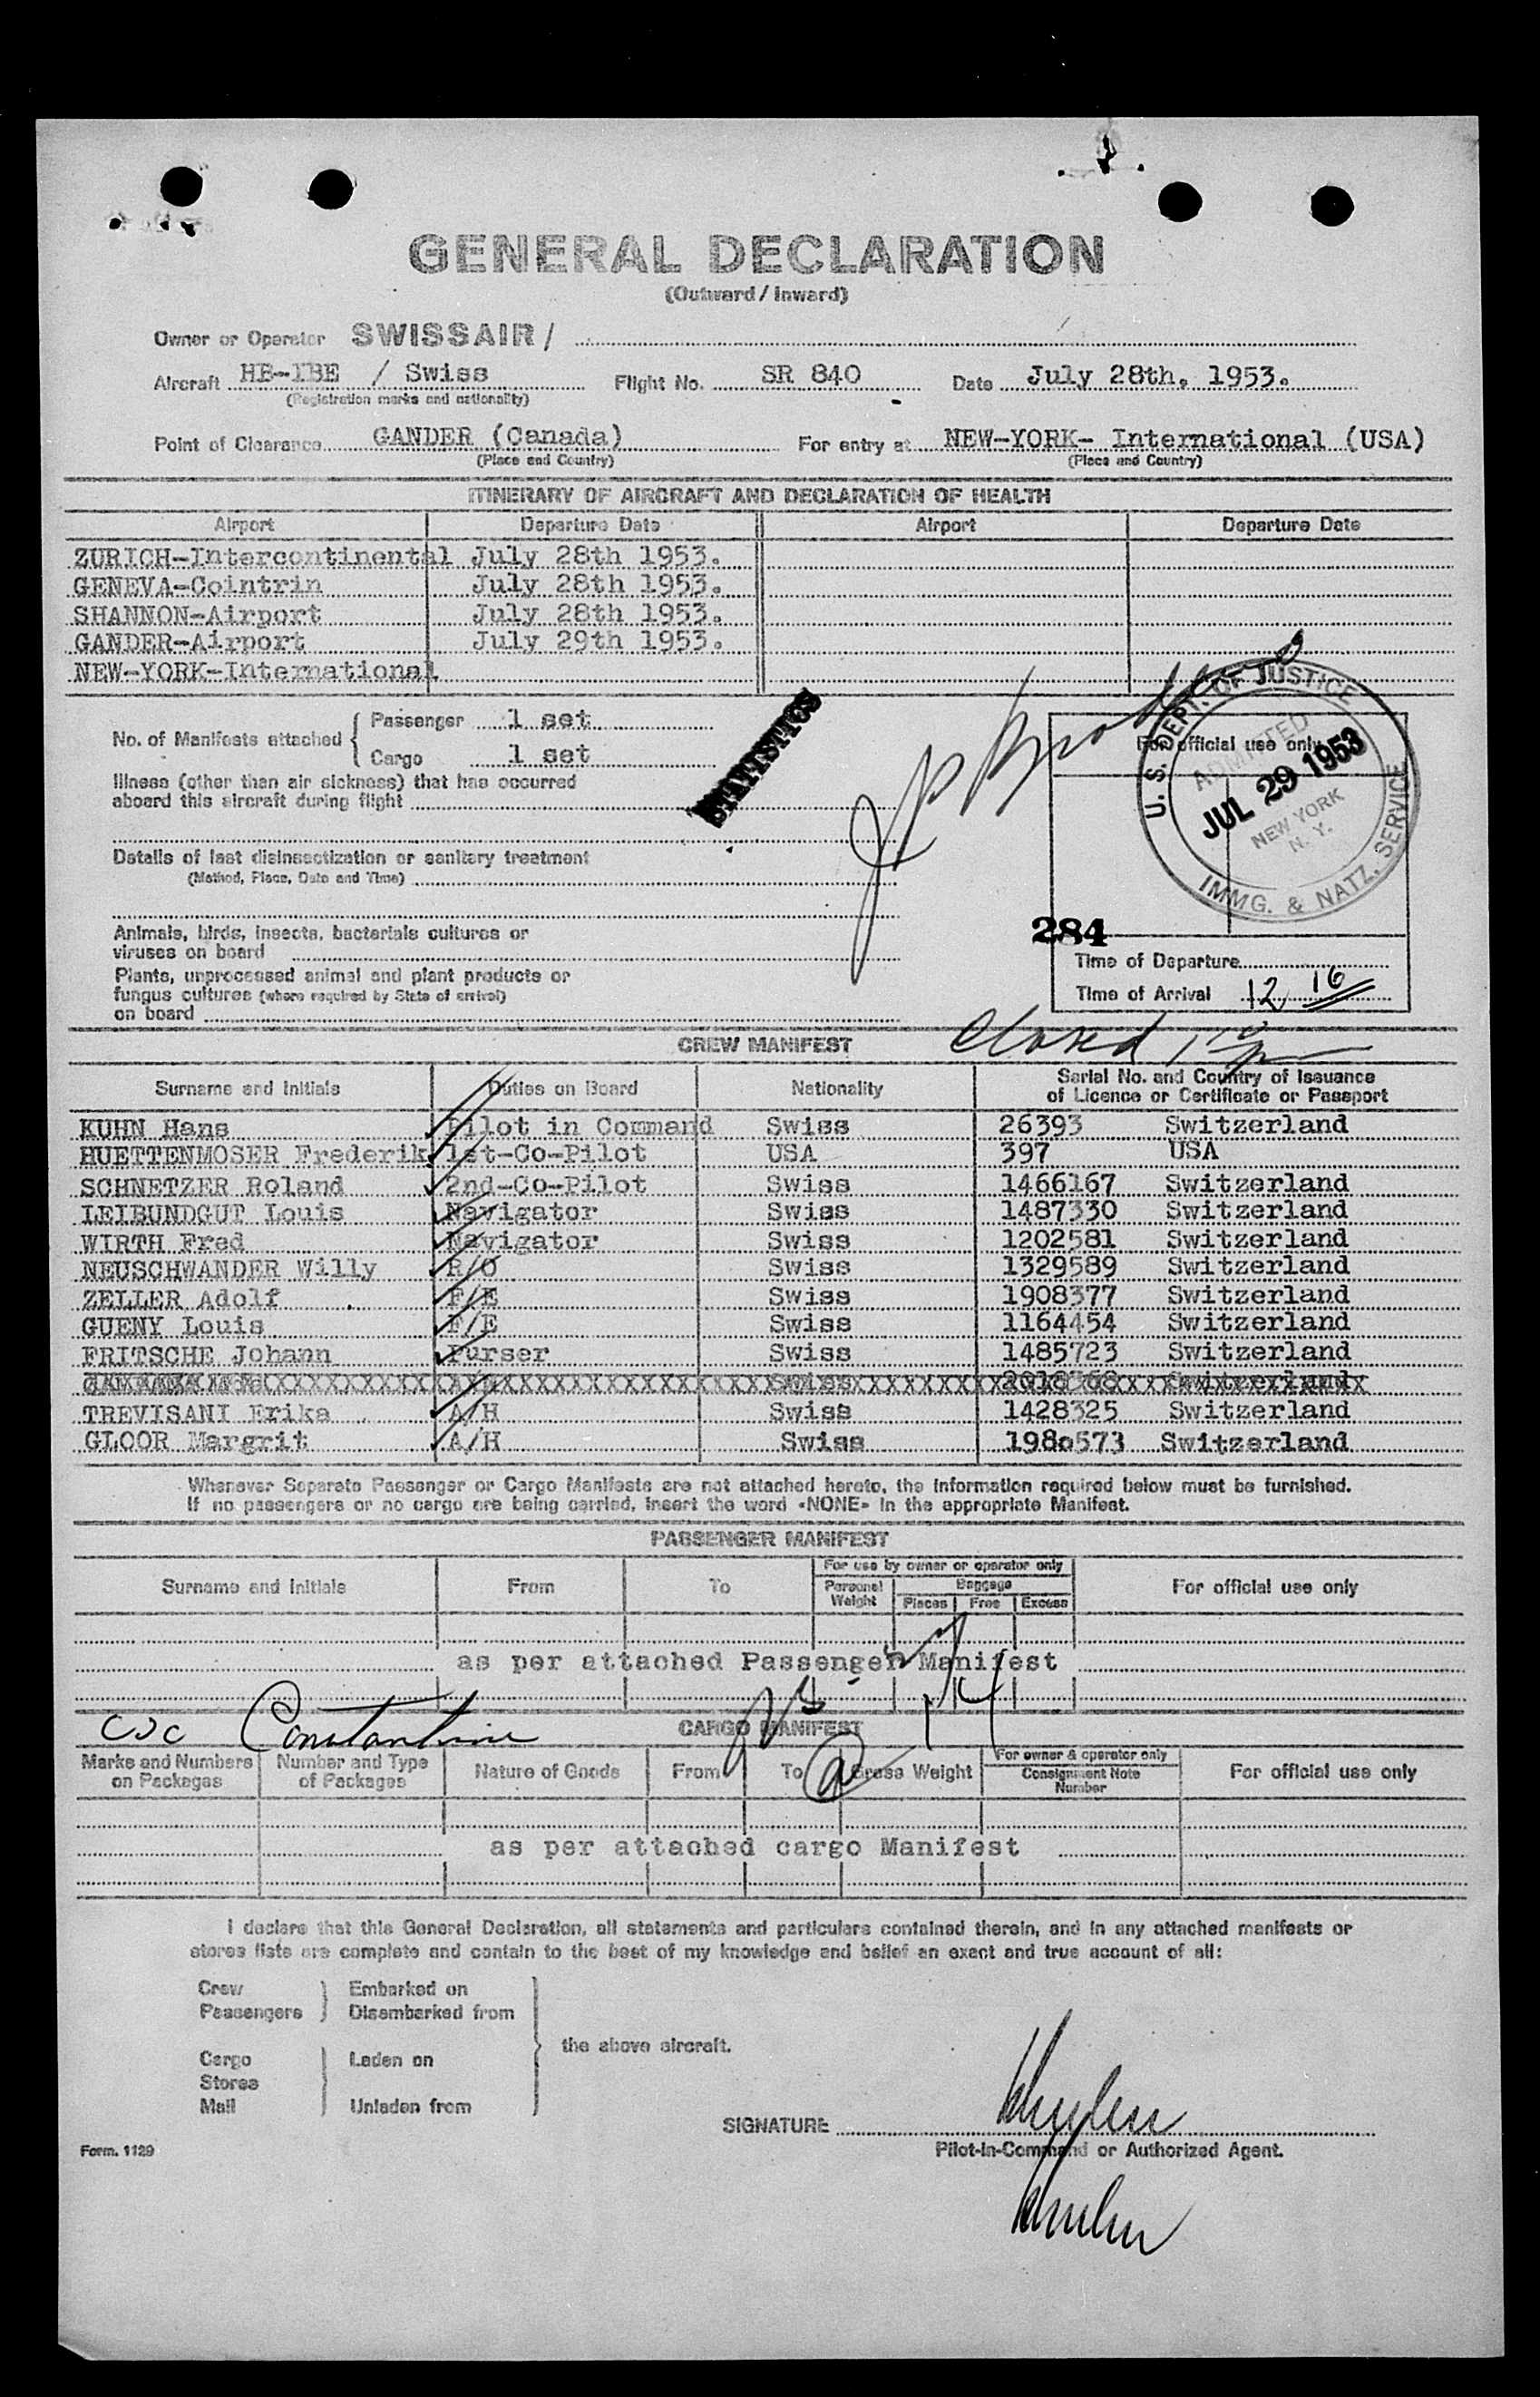 GENERAL DECLARATION
(Outward / Inward)
Owner or Operator SWISSAIR /
Aircraft HB-IBE / Swiss Flight No. SR 840 Date July 28th. 1953.
(Registration marks and nationality)
Point of Clearance GANDER (Canada) For entry at NEW-YORK- International (USA)
(Place and Country) (Place and Country)
ITINERARY OF AIRCRAFT AND DECLARATION OF HEALTH
Airport Departure Date Airport Departure Date
ZURICH-Intercontinental July 28th 1953.
GENEVA-Cointrin July 28th 1953.
SHANNON-Airport July 28th 1953.
GANDER-Airport July 29th 1953.
NEW-YORK-International
No. of Manifests attached
Passenger 1 set
Cargo 1 set
STATISTICS
For official use only
U. S. DEPT. OF JUSTICE
ADMITTED
JUL 29 1953
NEW YORK
N. Y.
IMMG. & NATZ. SERVICE
Illness (other than air sickness) that has occurred
aboard this aircraft during flight
Details of last disinsectization or sanitary treatment
(Method, Place, Date and Time)
Animals, birds, insects, bacterials cultures or
viruses on board
284
Plants, unprocessed animal and plant products or
fungus cultures (where required by State of arrival)
on board
Time of Departure
Time of Arrival 12 16
Closed
CREW MANIFEST
Surname and Initials Duties on Board Nationality Serial No. and Country of Issuance
of Licence or Certificate or Passport
KUHN Hans Pilot in Command Swiss 26393 Switzerland
HUETTENMOSER Frederik 1st-Co-Pilot USA 397 USA
SCHNETZER Roland 2nd-Co-Pilot Swiss 1466167 Switzerland
LEIBUNDGUT Louis Navigator Swiss 1487330 Switzerland
WIRTH Fred Navigator Swiss 1202581 Switzerland
NEUSCHWANDER Willy R/O Swiss 1329589 Switzerland
ZELLER Adolf F/E Swiss 1908377 Switzerland
GUENY Louis F/E Swiss 1164454 Switzerland
FRITSCHE Johann Purser Swiss 1485723 Switzerland
Swiss Switzerland
TREVISANI Erika A/H Swiss 1428325 Switzerland
GLOOR Margrit A/H Swiss 1980573 Switzerland
Whenever Separate Passenger or Cargo Manifests are not attached hereto, the information required below must be furnished.
If no passengers or no cargo are being carried, insert the word «NONE» in the appropriate Manifest.
PASSENGER MANIFEST
Surname and Initials From To For use by owner or operator only For official use only
Personal Weight Baggage
Pieces Free Excess
as per attached Passenger Manifest
Constantine
CARGO MANIFEST
Marks and Numbers on Packages Number and Type of Packages Nature of Goods From To Gross Weight For owner & operator only
Consignment Note Number
For official use only
as per attached cargo Manifest
I declare that this General Declaration, all statements and particulars contained therein, and in any attached manifests or
stores lists are complete and contain to the best of my knowledge and belief an exact and true account of all:
Crew Embarked on
Passengers Disembarked from
the above aircraft.
Cargo Laden on
Stores
Mail Unladen from
SIGNATURE
Form. 1129 Pilot-in-Command or Authorized Agent.